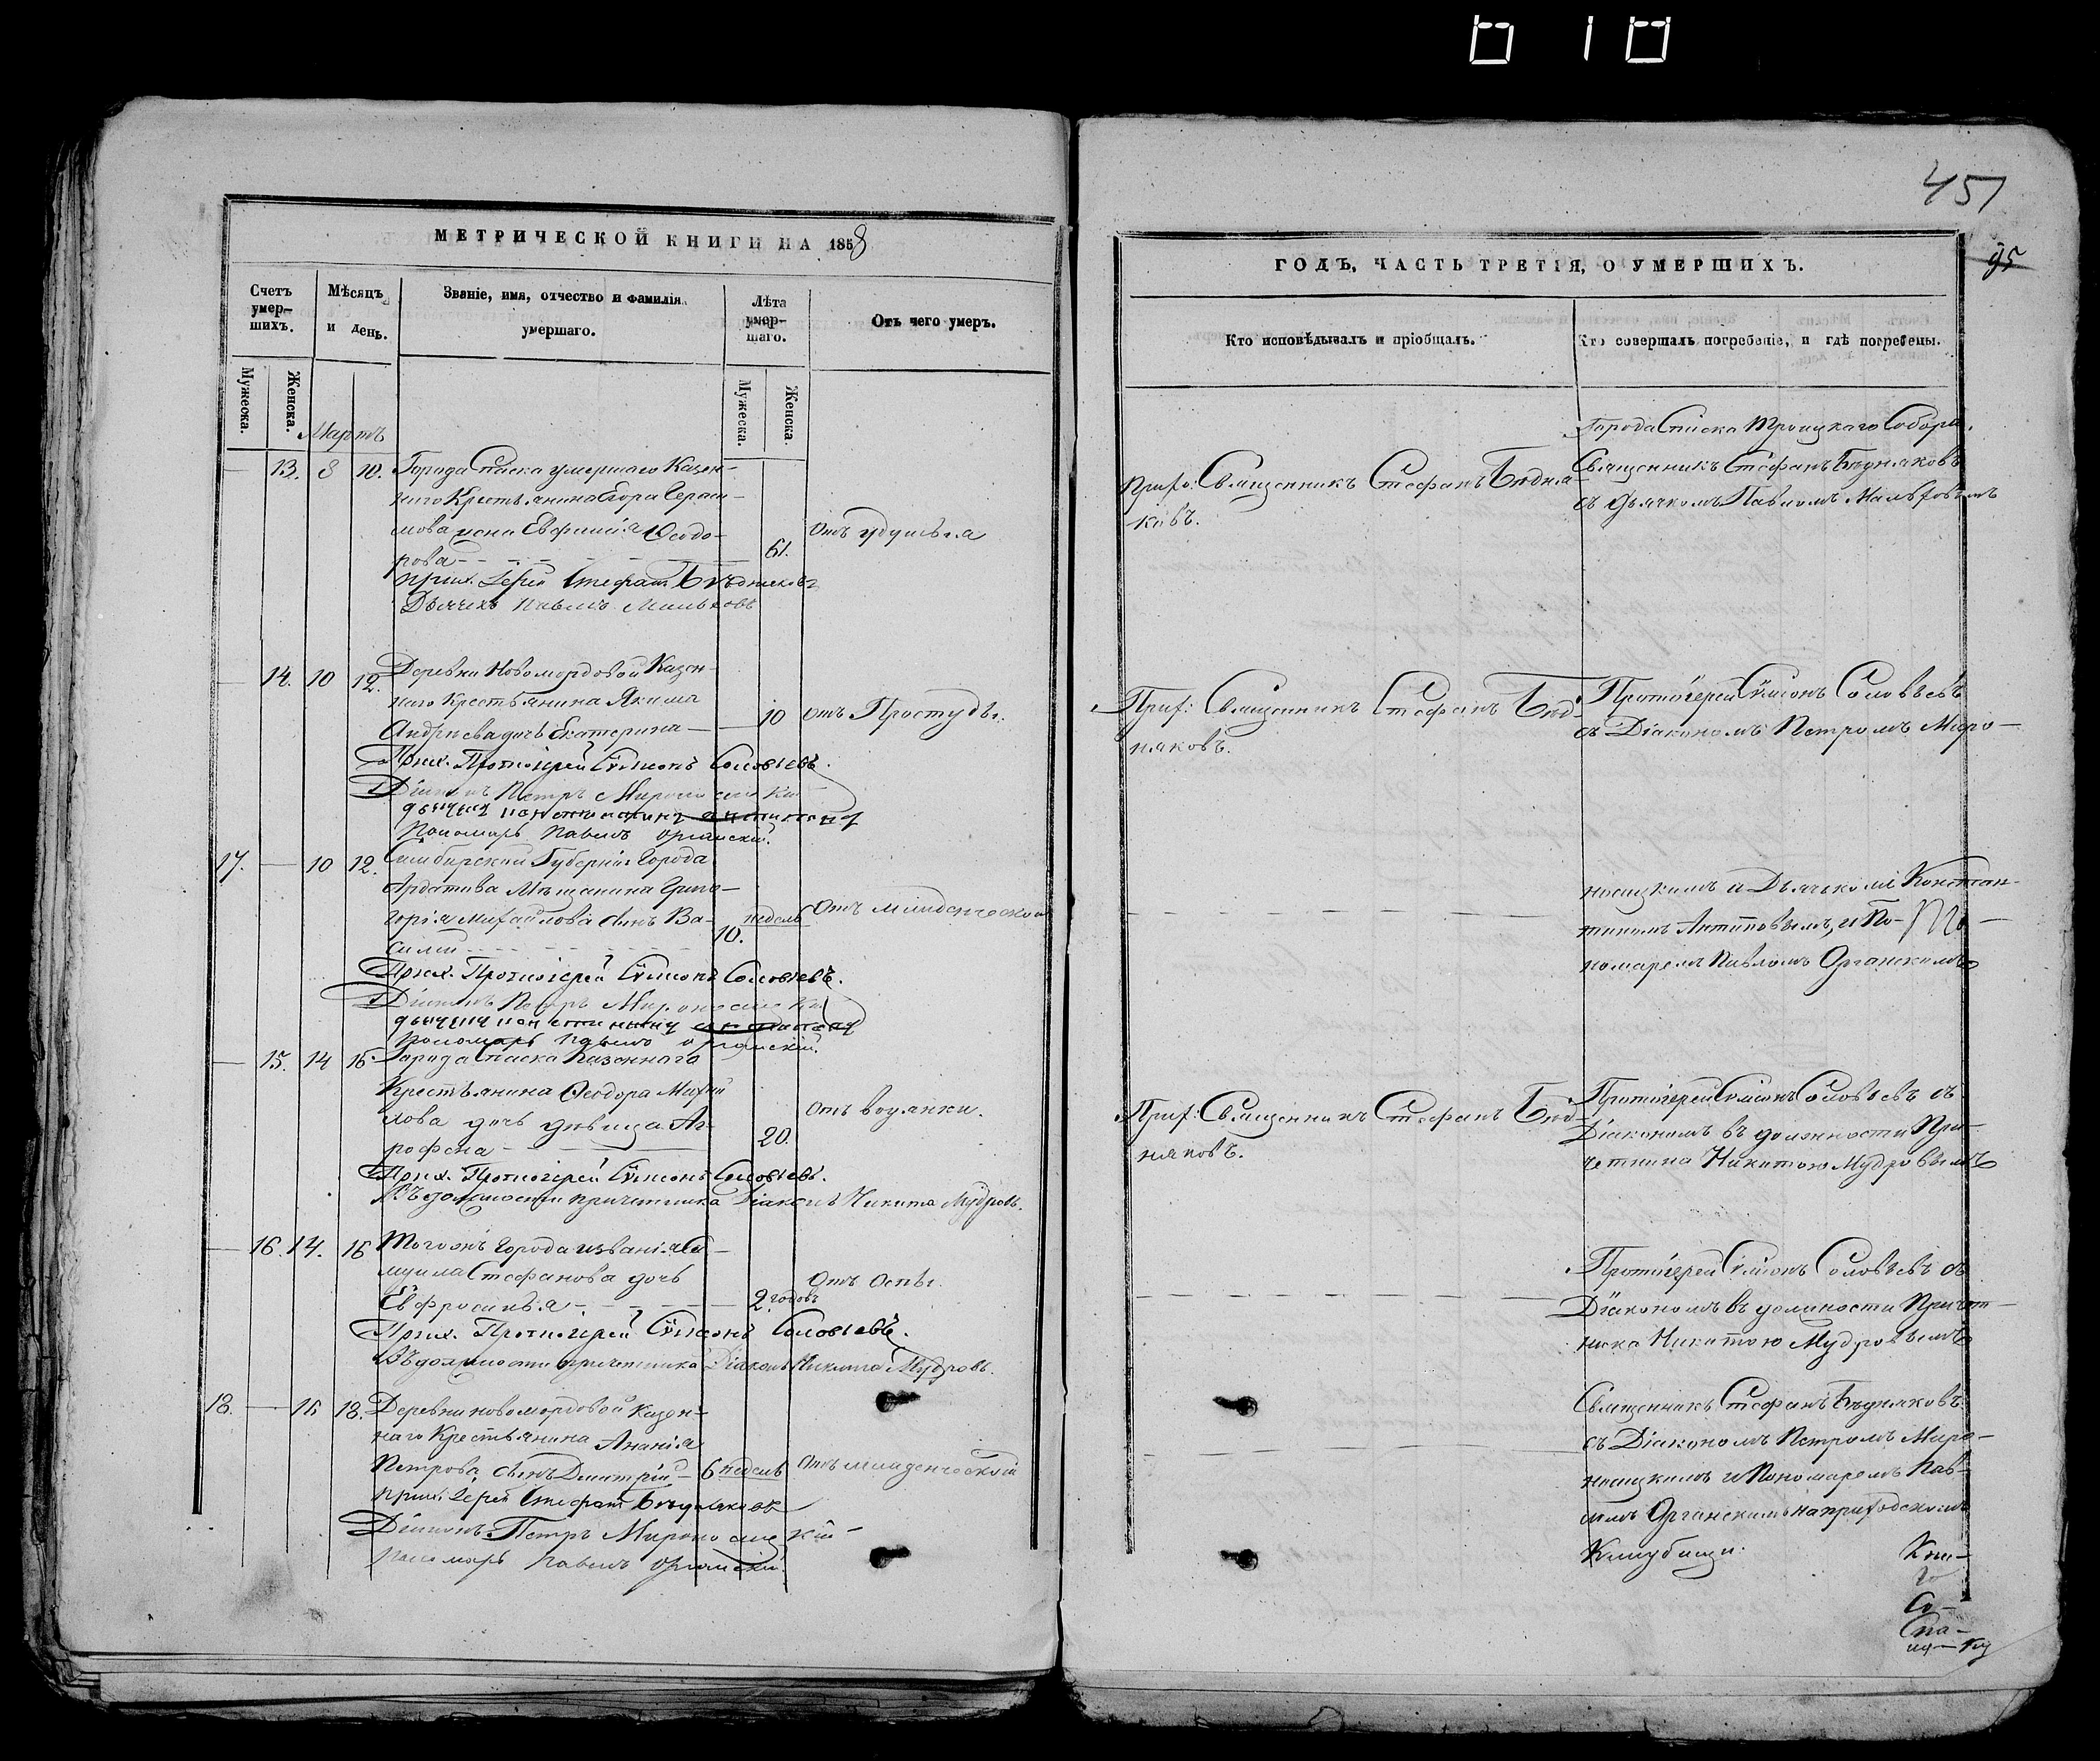 МЕТРИЧЕСКОЙ КНИГИ НА 1858
Счетъ умер-шихъ.
Мѣсяцъ и день.
Званіе, имя, отчество и фамилія умершаго.
Лѣта умер-шаго.
Отъ чего умеръ.
Мужеска.
Женска.
Мужеска.
Женска.
Мартъ
13. 8 10. Города Спаска умершаго Казен-
наго Крестьянина Егора Гераси-
мова жена Евфимія Ѳеодо-
рова 61. отъ удушья
прих. Іерей Стефанъ Бѣдняковъ
Дьячекъ Павелъ Мальковъ
14. 10 12. Деревни Новомордовой Казен-
наго Крестьянина Якима
Андреева дочь Екатерина 10 отъ Простуды.
Прих. Протоіерей Сѵмеонъ Соловьевъ.
Діаконъ Петръ Мироносицкій
Пономарь Павелъ Органскій.
17. 10 12. Симбирской Губерніи Города
Ардатова Мѣщанина Григо-
горія Михайлова сынъ Ва-
силій 10. недель Отъ младенческой
Прих. Протоіерей Сѵмеонъ Соловьевъ.
Діаконъ Петръ Мироносицкій
Пономарь Павелъ Органскій.
15. 14 16. Города Спаска Казеннаго
Крестьянина Ѳеодора Михай
лова дочь девица Аг-
рофена 20. Отъ водянки.
Прих. Протоіерей Сѵмеонъ Соловьевъ.
Въ должности причетника Діаконъ Никита Мудровъ.
16. 14. 16 Того жъ города и званія Са-
муила Стефанова дочь
Евфросинья 2 годовъ Отъ Оспы.
Прих. Протоіерей Сѵмеонъ Соловьевъ.
Въ должности причетника Діаконъ Никита Мудровъ.
18. 16 18. Деревни Новомордовой Казен-
наго Крестьянина Ананія
Петрова сынъ Дмитрій 6 недель Отъ младенческой
прих. Іерей Стефанъ Бѣдняковъ
Діаконъ Петръ Мироносицкій
Пономарь Павелъ Органскій.
451
95
ГОДЪ, ЧАСТЬ ТРЕТІЯ, О УМЕРШИХЪ.
Кто исповѣдывалъ и пріобщалъ.
Кто совершалъ погребеніе, и гдѣ погребены.
Прих: Священникъ Стефанъ Бедня-
ковъ.
Города Спаска Троицкаго Собора.
Священникъ Стефанъ Бедняковъ
съ Дьячкомъ Павломъ Мальковымъ
Прих: Священникъ Стефанъ Бед-
няковъ.
Протоіерей Сѵмеонъ Соловьевъ
съ Діакономъ Петромъ Миро-
носицкимъ и Дьячкомъ Констан-
тиномъ Антиповымъ, и По-
номаремъ Павломъ Органскимъ
Прих: Священникъ Стефанъ Бед-
няковъ.
Протоіерей Сѵмеонъ Соловьевъ съ
Діакономъ въ должности При-
четника Никитою Мудровымъ
Протоіерей Сѵмеонъ Соловьевъ съ
Діакономъ въ должности Причет-
ника Никитою Мудровымъ
Священникъ Стефанъ Бедняковъ
съ Діакономъ Петромъ Миро-
носицкимъ и Пономаремъ Пав-
ломъ Органскимъ на приходскомъ
Кладбищи.